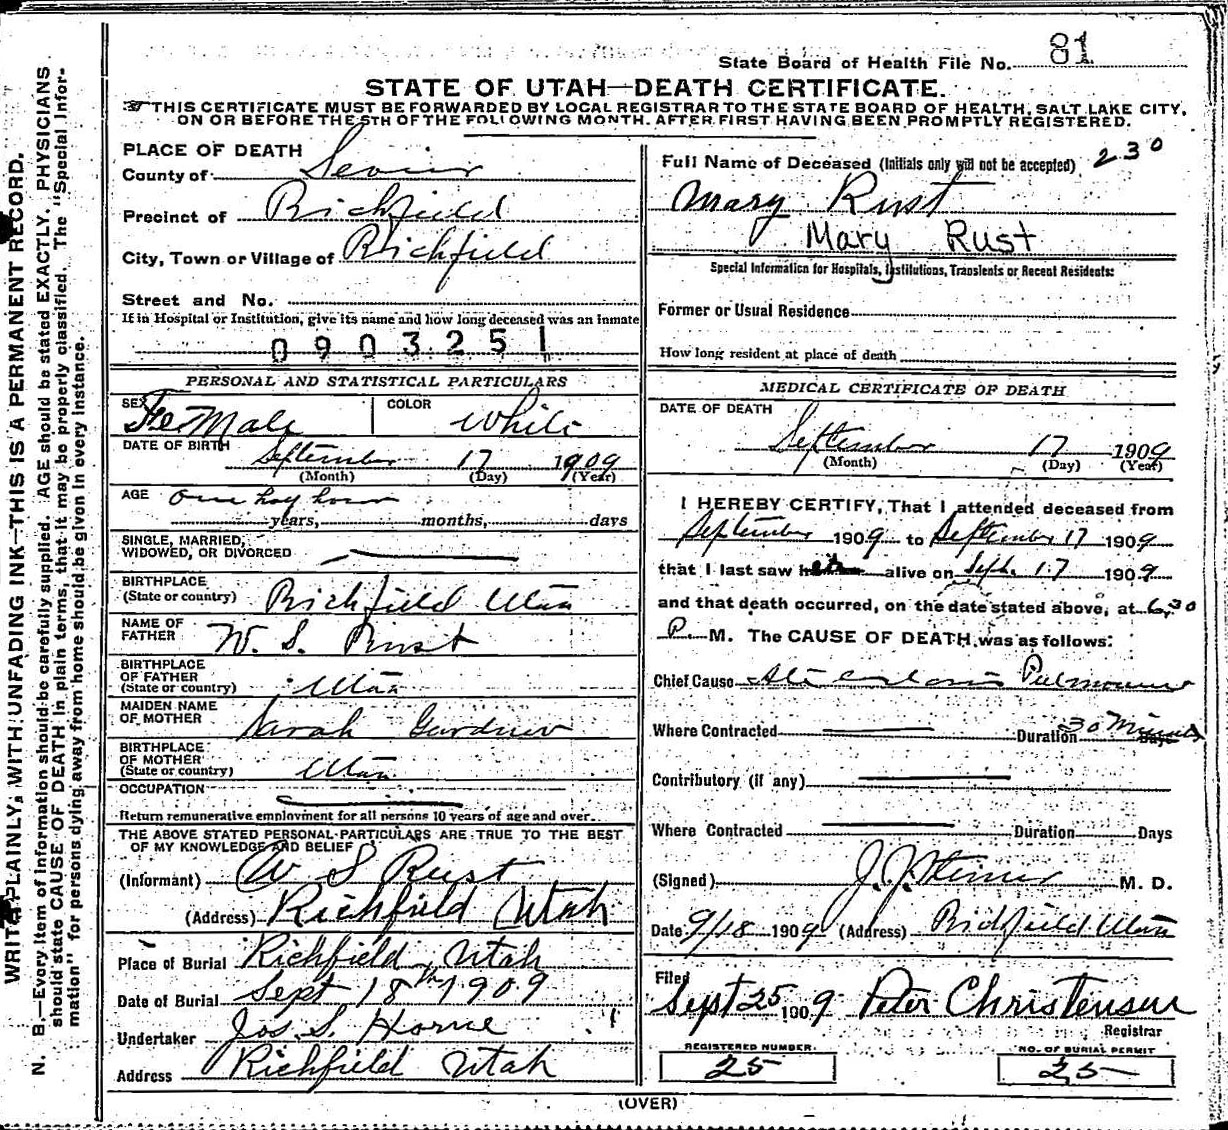 State Board of Health File No. 81
STATE OF UTAH—DEATH CERTIFICATE.
THIS CERTIFICATE MUST BE FORWARDED BY LOCAL REGISTRAR TO THE STATE BOARD OF HEALTH, SALT LAKE CITY,
ON OR BEFORE THE 5TH OF THE FOLLOWING MONTH. AFTER FIRST HAVING BEEN PROMPTLY REGISTERED.
WRITE PLAINLY, WITH UNFADING INK—THIS IS A PERMANENT RECORD.
N. B.—Every item of information should be carefully supplied. AGE should be stated EXACTLY. PHYSICIANS
should state CAUSE OF DEATH in plain terms, that it may be properly classified. The "Special Infor-
mation" for persons dying away from home should be given in every instance.
PLACE OF DEATH
County of Sevier
Precinct of Richfield
City, Town or Village of Richfield
Street and No.
If in Hospital or Institution, give its name and how long deceased was an inmate
0903251
PERSONAL AND STATISTICAL PARTICULARS
SEX Female COLOR White
DATE OF BIRTH September 17 1909
(Month) (Day) (Year)
AGE one half hour
years, months, days
SINGLE, MARRIED,
WIDOWED, OR DIVORCED
BIRTHPLACE
(State or country) Richfield Utah
NAME OF
FATHER W. S. Rust
BIRTHPLACE
OF FATHER
(State or country) Utah
MAIDEN NAME
OF MOTHER Sarah Gardner
BIRTHPLACE
OF MOTHER
(State or country) Utah
OCCUPATION
Return remunerative employment for all persons 10 years of age and over.
THE ABOVE STATED PERSONAL PARTICULARS ARE TRUE TO THE BEST
OF MY KNOWLEDGE AND BELIEF
(Informant) W S Rust
(Address) Richfield Utah
Place of Burial Richfield Utah
Date of Burial Sept 18th 1909
Undertaker Jos. S. Horne
Address Richfield Utah
Full Name of Deceased (Initials only will not be accepted) 230
Mary Rust
Mary Rust
Special Information for Hospitals, Institutions, Transients or Recent Residents:
Former or Usual Residence
How long resident at place of death
MEDICAL CERTIFICATE OF DEATH
DATE OF DEATH
September 17 1909
(Month) (Day) (Year)
I HEREBY CERTIFY, That I attended deceased from
September 1909 to September 17 1909
that I last saw her alive on Sept. 17 1909
and that death occurred, on the date stated above, at 6,30
P M. The CAUSE OF DEATH was as follows:
Chief Cause
Where Contracted Duration 30 Minutes
Contributory (if any)
Where Contracted Duration Days
(Signed) J. J. Steiner M. D.
Date 9/18 1909 (Address) Richfield Utah
Filed
Sept 25 1909 Peter Christensen
Registrar
REGISTERED NUMBER. NO. OF BURIAL PERMIT
25 25
(OVER)